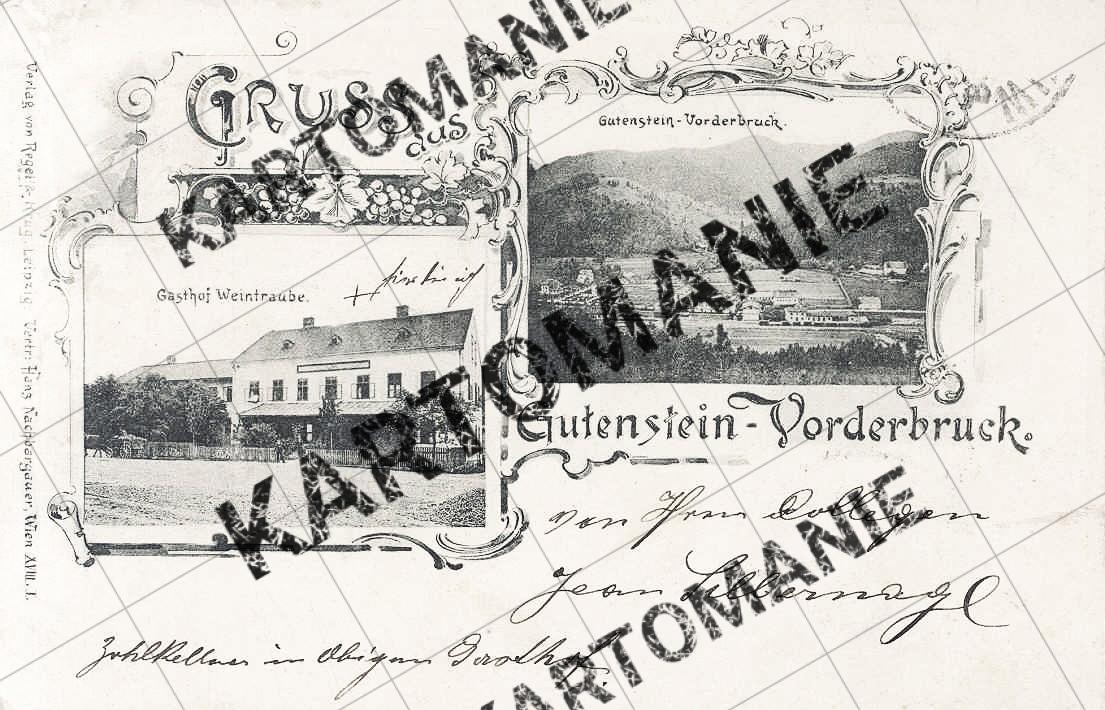 GRUSS
aus
Gutenstein-Vorderbruck.
Gasthof Weintraube.
Gutenstein-Vorderbruck.
von Ihrem Collegen
Jean Silbernagl
Zahlkellner in Obigem Gasthof.
Verlag von Regel & Krug, Leipzig. Vertr: Hans Nachbargauer, Wien XVIII. 1.
KARTOMANIE
KARTOMANIE
KARTOMANIE